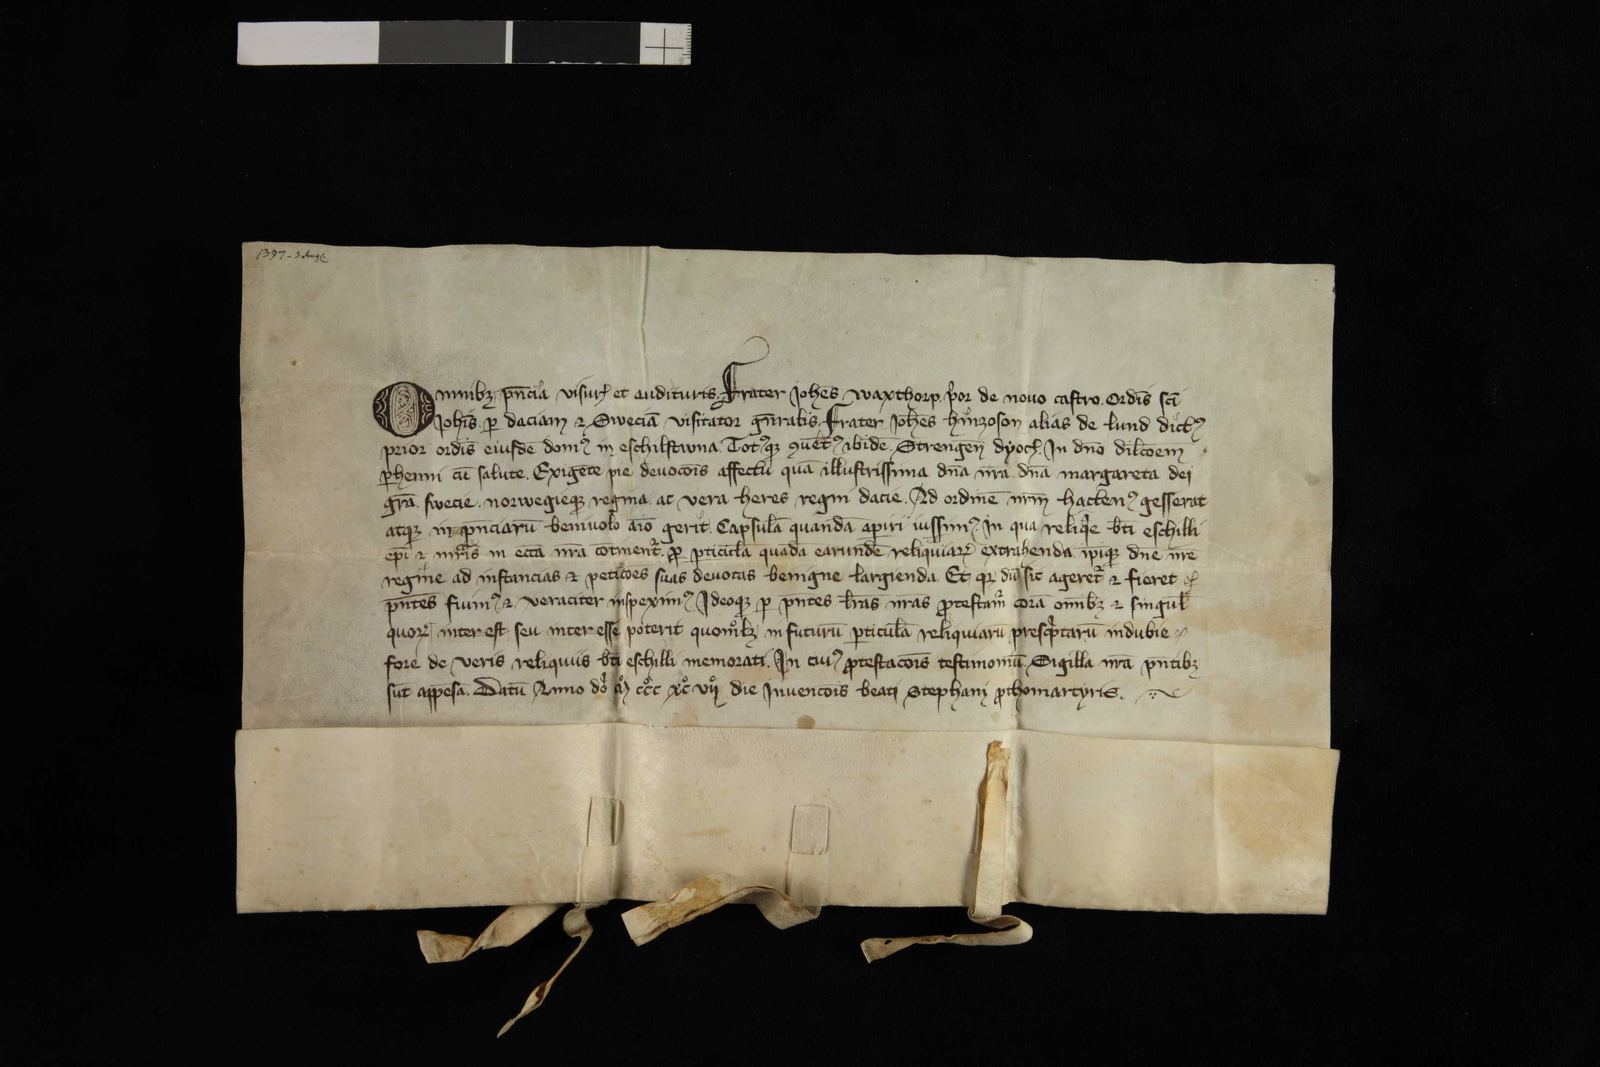 1397 - 3 Aug.
Omnibꝫ pn̄cia visur̄ et audituris. Frater Joh̄es Waxthorp. pͥor de nouo castro. Ordīs scī
Joh̄is. ꝑ daciam ⁊ Sweciā visitator gn̄ralis. Frater Joh̄es hinzoson alias de lund dc̄tꝰ
prior ordīs eiusdē domꝰ in eschilstwna. Totꝰqꝫ ꝯuētꝰ ibidē. Strengen̄ dyoc̄. In dn̄o dilc̄oem
ꝑhenni cū salute. Exigēte pie deuoc̄ois affectu quā illustrissima dn̄a nr̄a dn̄a margareta dei
gr̄a. swecie. norwegieqꝫ regina. ac vera heres regni dacie. Ad ordinē nr̄m hactenꝰ gesserat
atqꝫ in pn̄ciarū beniuolo aīo gerit. Capsulā quandā aperiri iussimꝰ. In qua reliqͥe bt̄i eschilli
ep̄i ⁊ mr̄is in ecc̄a nr̄a cōtinent̄. ꝓ ꝑticula quadā earundē reliquiar̄ extrahenda. ip̄iqꝫ dn̄e nr̄e
regine ad instancias ⁊ petic̄oes suas deuotas benigne largienda. Et qꝛ dū sic ageret̄ ⁊ fieret
pn̄tes fuimꝰ ⁊ veraciter inspeximꝰ. Ideoqꝫ ꝑ pn̄tes lr̄as nr̄as ꝓtestam̄ corā om̄ibꝫ ⁊ singul̄
quor̄ interest seu interesse poterit quomͦlꝫ in futurū ꝑticulā reliquiarū presc̄ptarū indubie
fore de veris reliquiis bt̄i eschilli memorati. In cuiꝰ ꝓtestac̄ois testimoniū Sigilla nr̄a pn̄tibꝫ
sūt appēsa. Datū Anno dō mͦ cccͦ xcͦ vijͦ die Inuenc̄ois beati Stephani ꝓthomartyris.